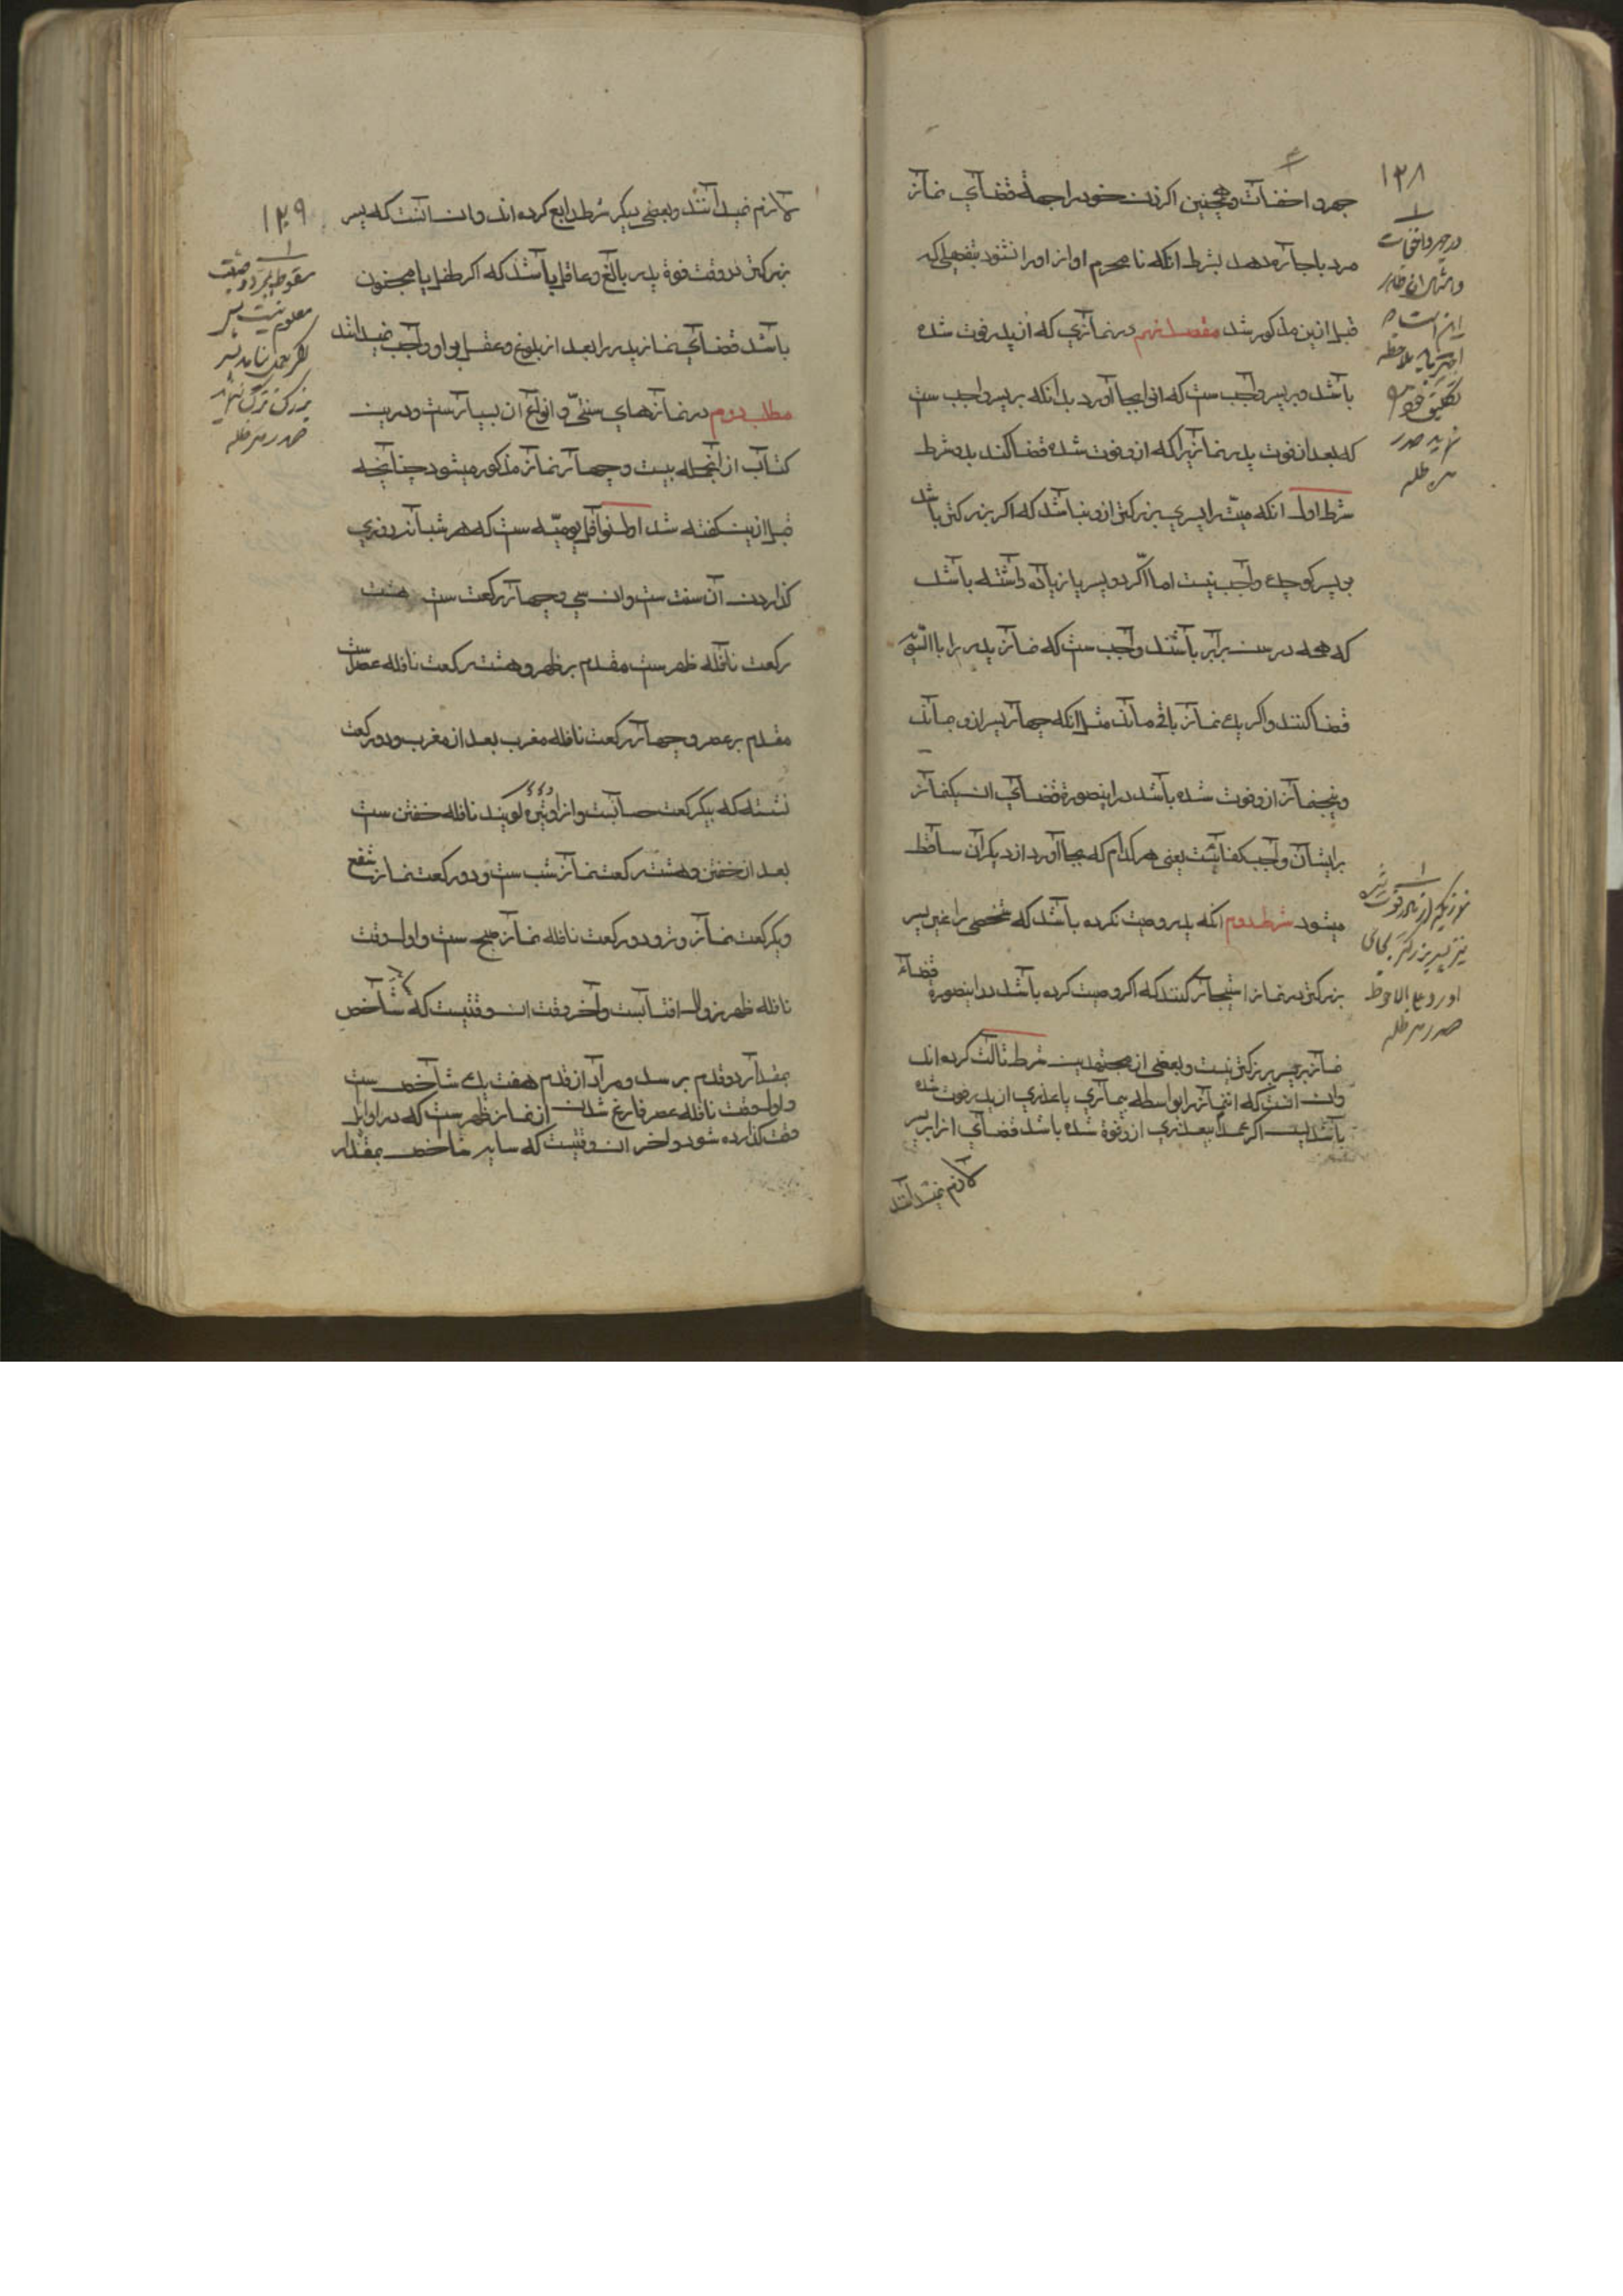 ۱۲۸
جهر و اخفات و همچنین اگر زن خود را جهة قضای نماز
مرد باجاره دهد بشرط انکه نامحرم اواز او را نشنود بتفصیلی که
قبل ازین مذکور شد مقصد نهم در نمازی که از پدر فوت شده
باشد و بر پسر واجب ست که انرا بجا آورد بدانکه بر پسر واجب ست
که بعد از فوت پدر نمازیرا که از و فوت شده قضا کند بدو شرط
شرط اول انکه میت را پسری بزرکتر ازو نباشد که اکر بزرکتر باشد
بر پسر کوچک واجب نیست اما اکر دو پسر یا زیاده داشته باشد
که همه در سن برابر باشند واجب ست که نماز پدر را بالسّویّه
قضا کنند و اکر یک نماز باقی ماند مثل انکه چهار پسر ازو ماند
و پنج نماز ازو فوت شده باشد درینصورة قضای ان یکنماز
برایشان واجب کفائیست یعنی هر کدام که بجا آورد از دیکران ساقط
میشود شرط دوم انکه پدر وصیت نکرده باشد که شخصی را غیر پسر
بزرکتر در نماز استیجار کنند که اکر وصیت کرده باشد درینصورة قضاء
نماز بر پسر بزرکتر نیست و بعضی از مجتهدین شرط ثالث کرده اند
وان انست که ان نماز را بواسطه بیماری یا عذری از پدر فوت شده
باشد پس اکر عمداً بیعذری ازو فوة شده باشد قضای انرا بر پسر
لازم نمیدانند
در جهر و اخفات
نماز یکه از مادر فوت شده
نیز پسر بزرکتر بجای
اورد علی الاحوط
صدر مد ظله
۱۲۹
لازم نمیدانند و بعضی دیکر شرط رابع کرده اند و ان انست که پسر
بزرکتر در وقت فوة پدر بالغ و عاقل باشد که اکر طفل یا مجنون
باشد قضای نماز پدر را بعد از بلوغ و عقل بر او واجب نمیدانند
مطلب دوم در نمازهای سنتی و انواع ان بسیارست و درین
کتاب از انجمله بیست و چهار نماز مذکور میشود چنانچه
قبل ازین کفته شد اول نوافل یومیّه ست که هر شبانروزی
کذاردن آن سنت ست و ان سی و چهار رکعت ست هشت
رکعت نافله ظهر ست مقدم بر ظهر و هشت رکعت نافله عصر ست
مقدم بر عصر و چهار رکعت نافله مغرب بعد از مغرب و دو رکعت
نشسته که بیکرکعت حسابست و انرا وتیره کویند نافله خفتن ست
بعد از خفتن و هشت رکعت نماز شب ست و دو رکعت نماز شفع
و یکرکعت نماز وتر و دو رکعت نافله نماز صبح ست و اول وقت
نافله ظهر زوال افتابست و آخر وقت ان وقتیست که شاخص
بمقدار دو قدم برسد و مراد از قدم هفت یک شاخص ست
و اول وقت نافله عصر فارغ شدن از نماز ظهر ست که در اوایل
وقت کذارده شود و اخر ان وقتیست که سایه شاخص بمقدار
سقوط بمجرد وصیت
معلوم نیست
صدر مد ظله